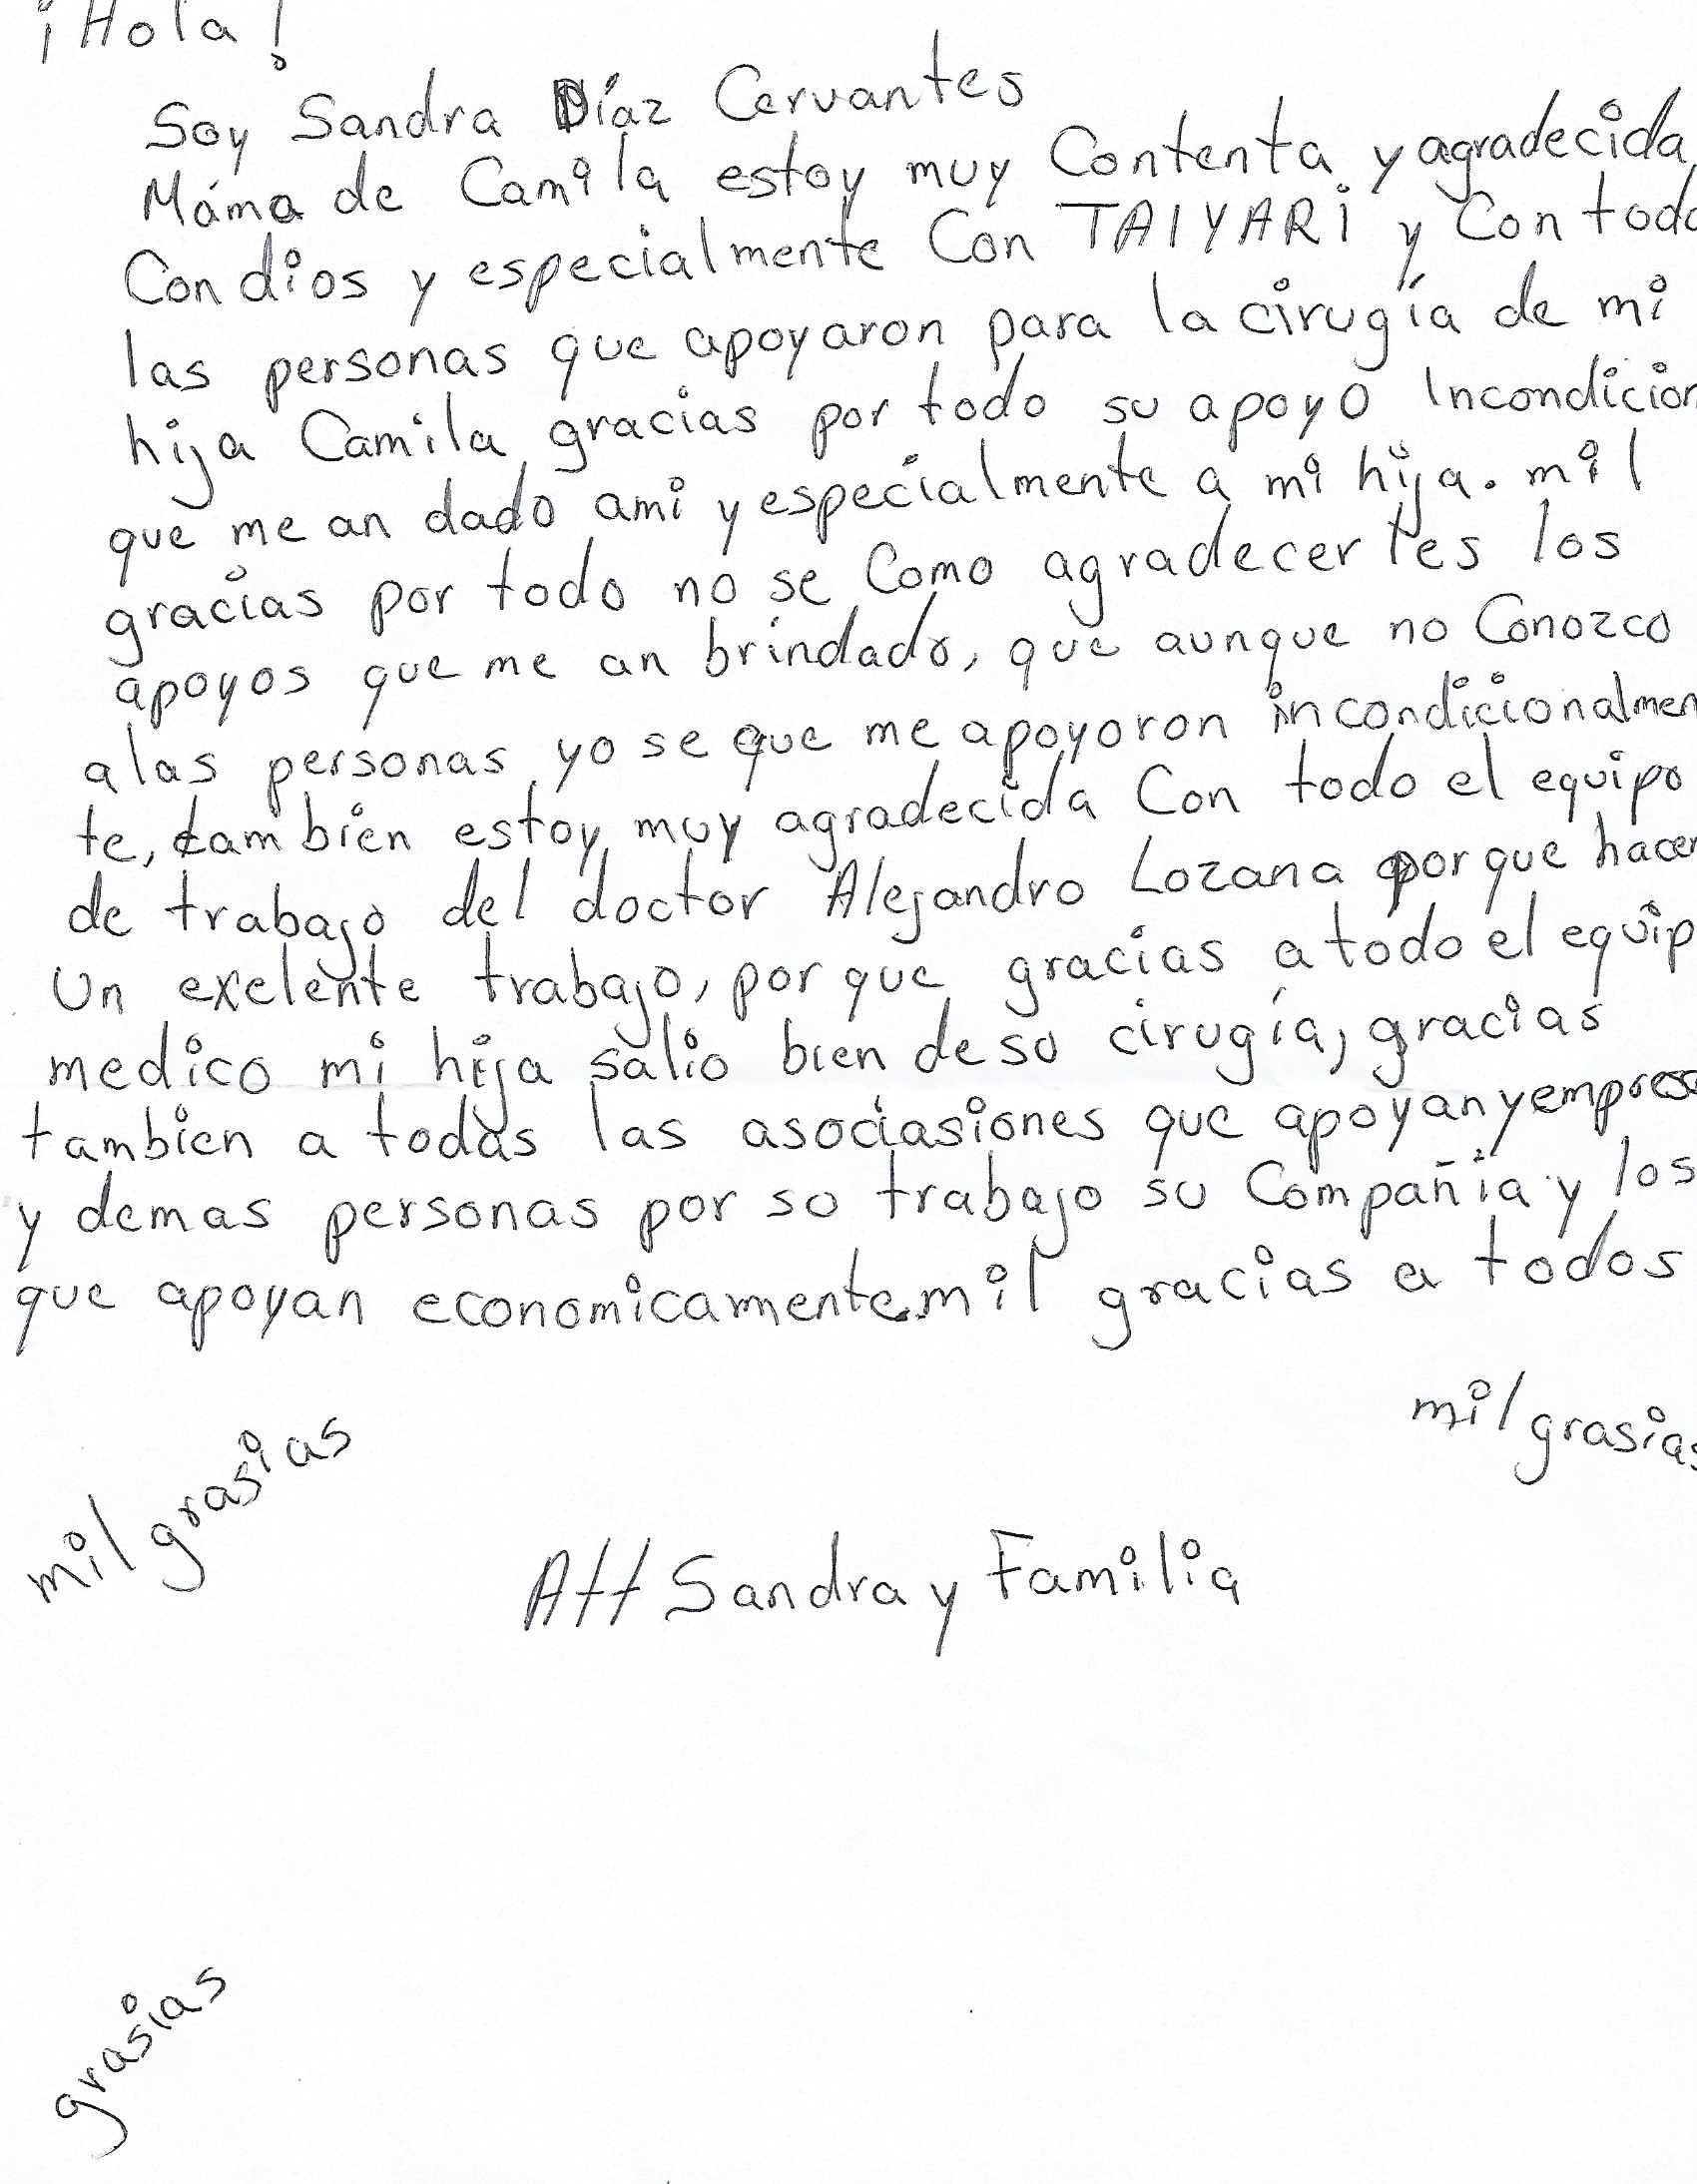 ¡Hola!
Soy Sandra Díaz Cervantes
Máma de Camila estoy muy Contenta y agradecida
Con dios y especialmente Con TAIYARI y Con todo
las personas que apoyaron para la cirugía de mi
hija Camila gracias por todo su apoyo Incondicion
que me an dado ami y especialmente a mi hija. mil
gracias por todo no se Como agradecerles los
apoyos que me an brindado, que aunque no Conozco
alas personas yo se que me apoyoron incondicionalmen
te, tambien estoy muy agradecida Con todo el equipo
de trabajo del doctor Alejandro Lozana porque hacen
Un exelente trabajo, por que gracias a todo el equip
medico mi hija salio bien de su cirugía, gracias
tambien a todas las asociasiones que apoyan y empresa
y demas personas por su trabajo su Compañia y los
que apoyan economicamente. mil gracias a todos
mil grasias
mil grasias
Att Sandra y Familia
grasias